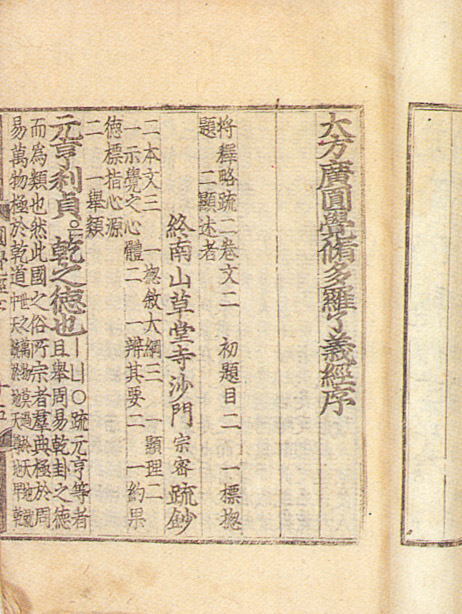 大方廣圓覺脩多羅了義經序
將釋略疏二卷文二 初題目二 一標揔
題 二顯述者
終南山草堂寺沙門宗密疏鈔
二本文三 一揔敘大綱三 一顯理二
一示覺之心體二 一辨其要二 一約果
德標指心源
二 一舉類
元亨利貞乾之德也 ○疏元亨等者
且舉周易乾卦之德
而爲類也然此國之俗所宗者羣典極於周
易萬物極於乾道